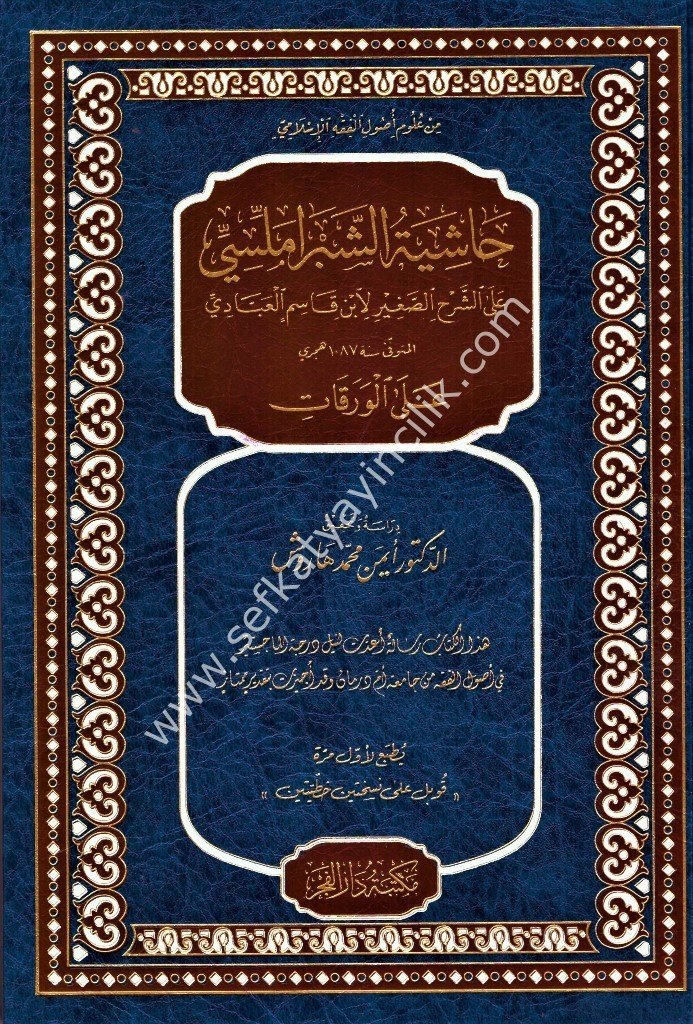 مِنْ عُلُومِ أُصُولِ ٱلْفِقْهِ ٱلْإِسْلَامِيِّ
حَاشِيَةُ الشَّبْرَامَلِّسِيِّ
عَلَى الشَّرْحِ الصَّغِيرِ لِابْنِ قَاسِمِ الْعَبَادِيِّ
المتوفى سنة ١٠٨٧ هجري
عَلَى ٱلْوَرَقَاتِ
دِرَاسَة وَتحقيق
الدكتور أيمن محمد هاروش
هذا الكتاب رسالة أعدت لنيل درجة الماجستير
في أصول الفقه من جامعة أم درمان وقد أجيزت بتقدير ممتاز
يُطبَع لأوّل مرّة
«قوبل على نسختين خطّيتين»
مَكْتَبَة دَارُ الفَجْرِ
www.sefkatyayincilik.com